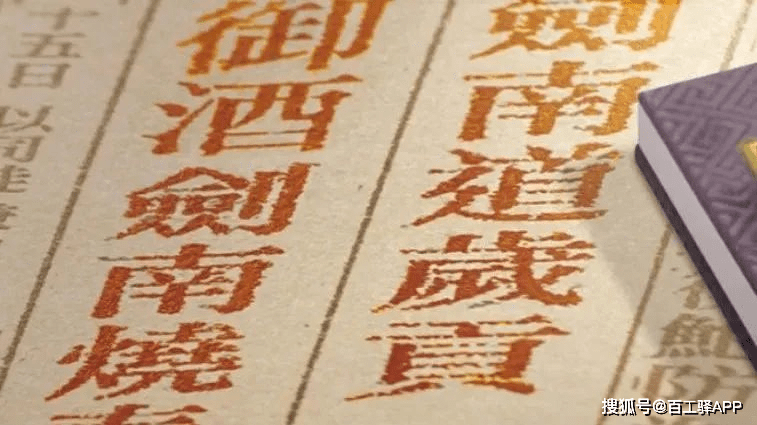 鮑防
劍南道歲貢
御酒劍南燒
十五日以
搜狐号@百工驿APP